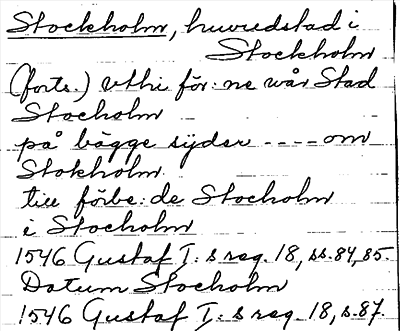 Stockholm, huvudstad i
Stockholm
(forts.) vthi för: ne wår Stad
Stocholm
på bägge sijdor ---- om
Stokholm
till förbe: de Stocholm
i Stocholm
1546 Gustaf I: s reg. 18, ss. 84, 85.
Datum Stocholm
1546 Gustaf I: s reg. 18, s. 87.